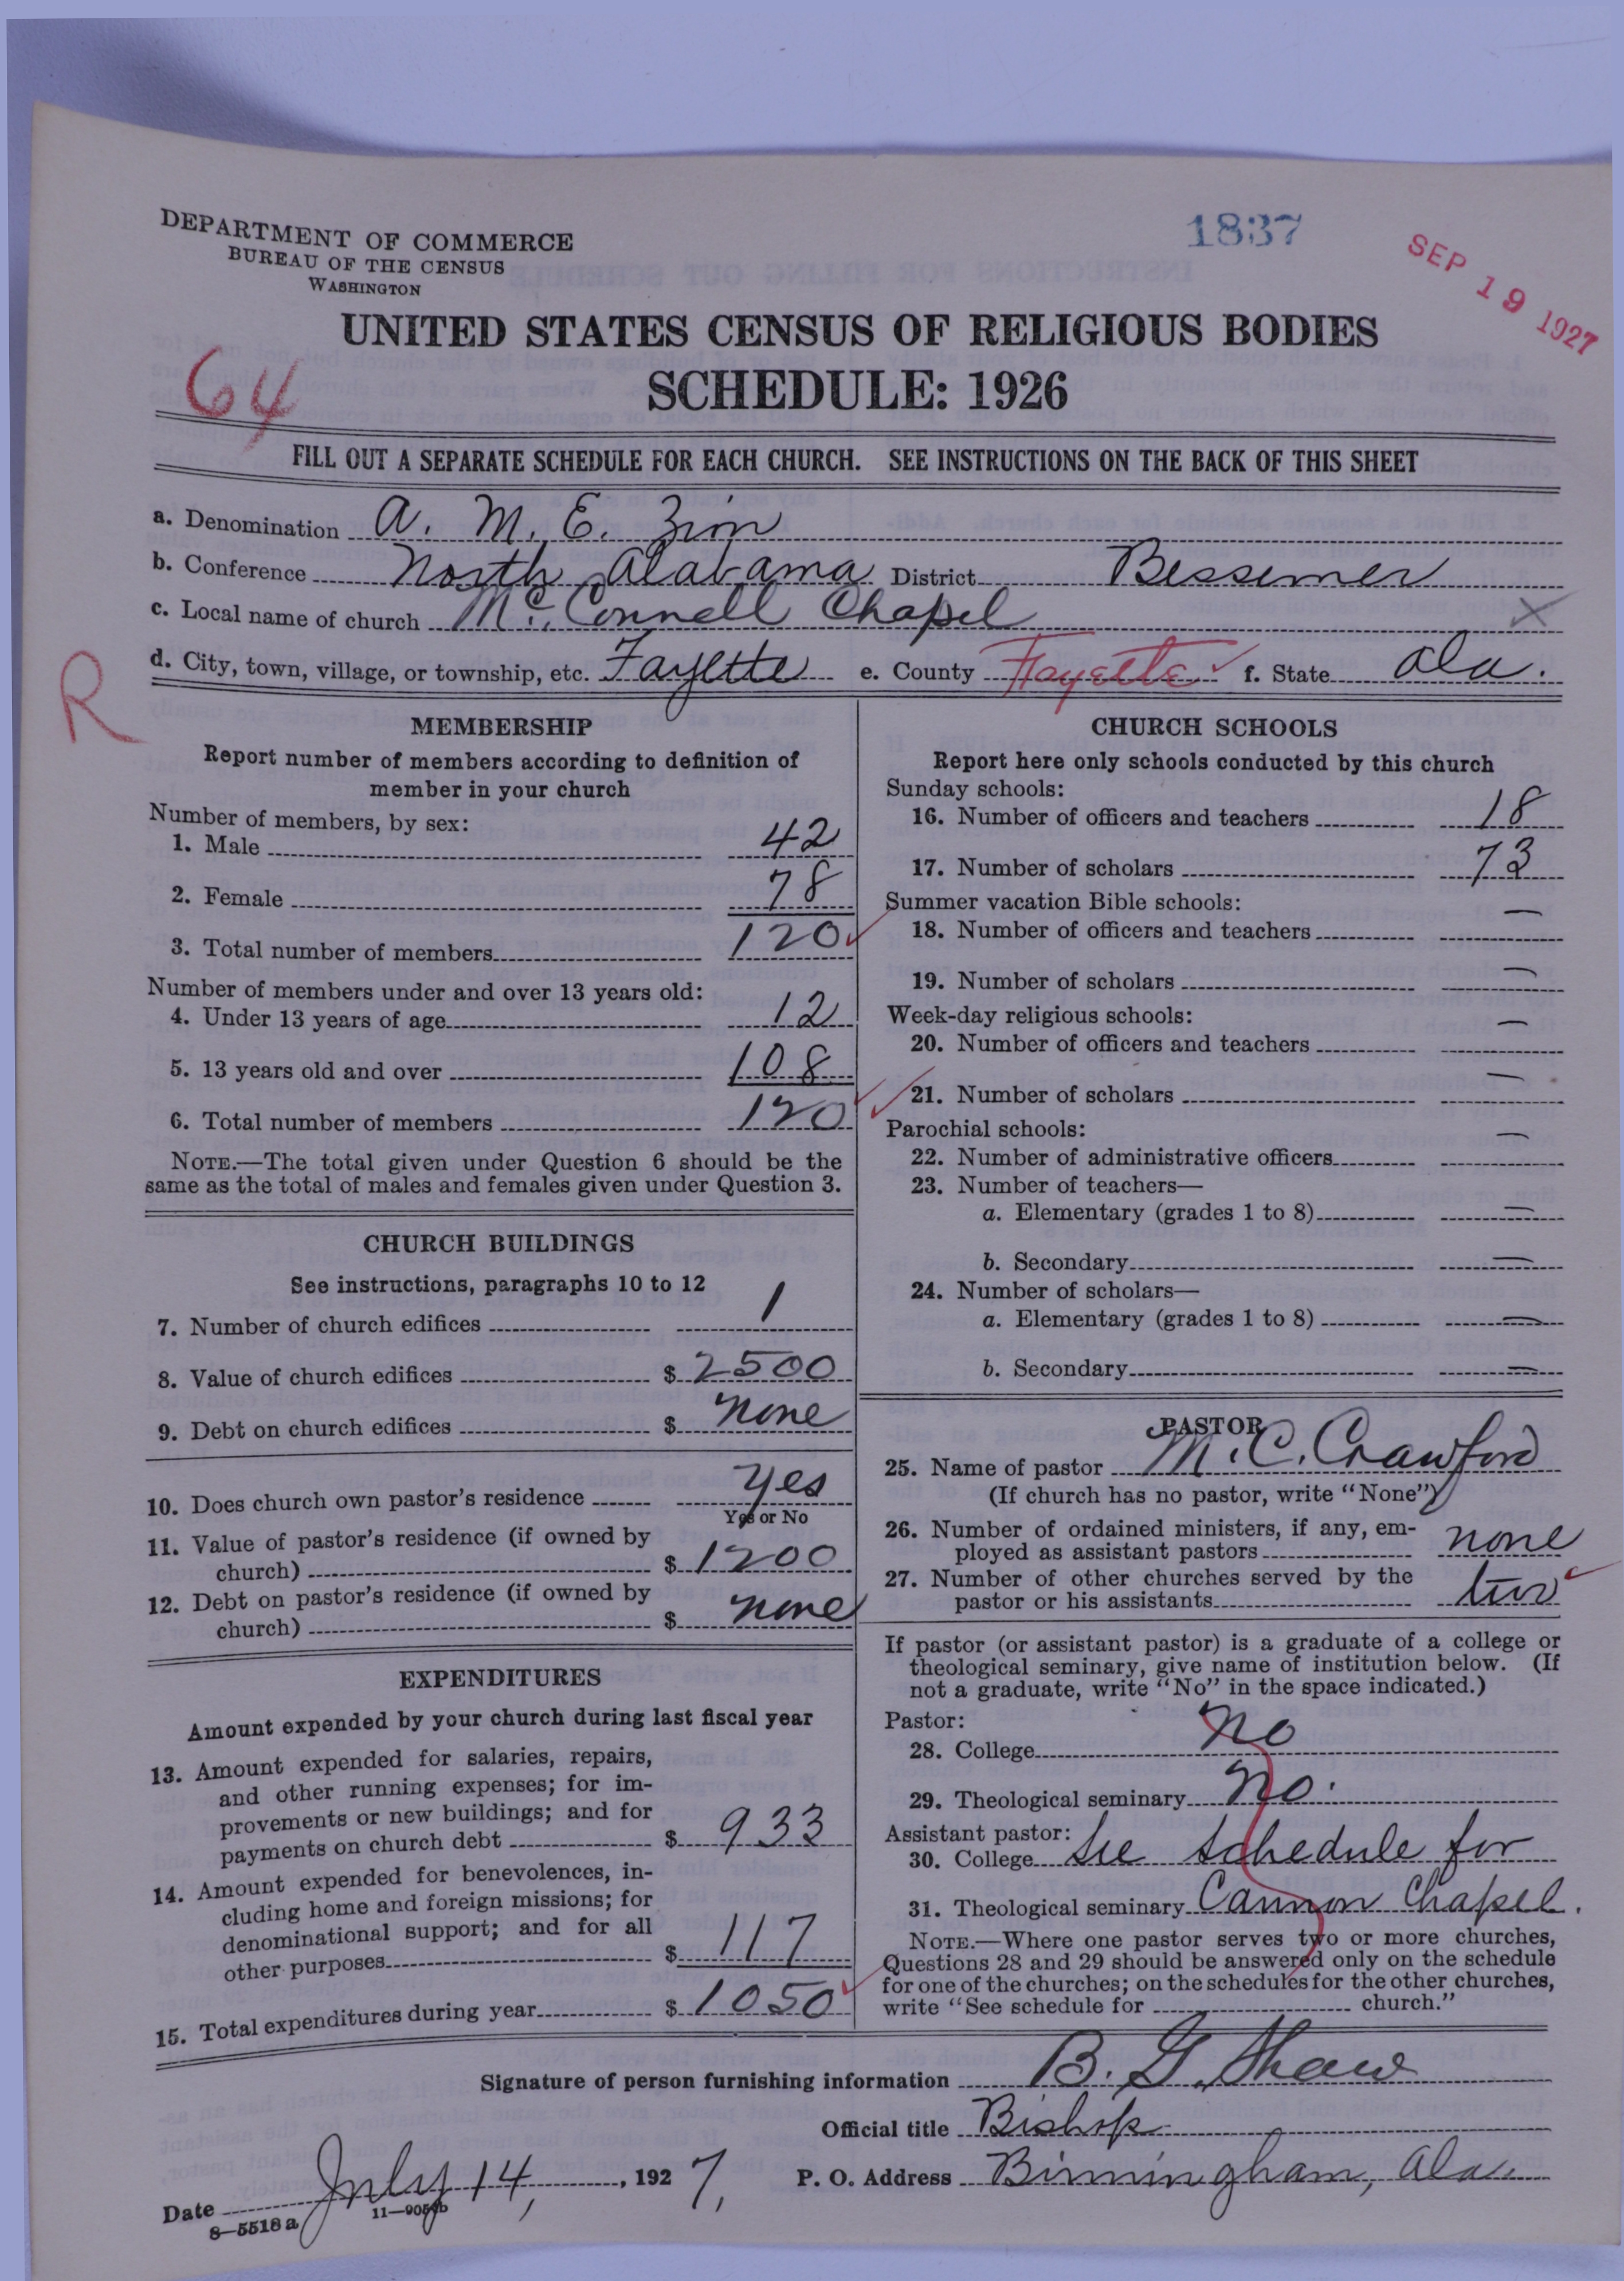 DEPARTMENT OF COMMERCE
BUREAU OF THE CENSUS
WASHINGTON
1837
SEP 19 1927
UNITED STATES CENSUS OF RELIGIOUS BODIES
SCHEDULE: 1926
64
FILL OUT A SEPARATE SCHEDULE FOR EACH CHURCH. SEE INSTRUCTIONS ON THE BACK OF THIS SHEET
a. Denomination A. M. E. Zion
b. Conference North Alabama District Bessemer
c. Local name of church Mc. Connell Chapel
d. City, town, village, or township, etc. Fayette e. County Fayette f. State Ala.
R
MEMBERSHIP
Report number of members according to definition of
member in your church
Number of members, by sex:
1. Male 42
2. Female 78
3. Total number of members 120
Number of members under and over 13 years old:
4. Under 13 years of age 12
5. 13 years old and over 108
6. Total number of members 120
NOTE.—The total given under Question 6 should be the
same as the total of males and females given under Question 3.
CHURCH BUILDINGS
See instructions, paragraphs 10 to 12
7. Number of church edifices 1
8. Value of church edifices $ 2500
9. Debt on church edifices $ none
10. Does church own pastor's residence yes
Yes or No
11. Value of pastor's residence (if owned by
church) $ 1200
12. Debt on pastor's residence (if owned by
church) $ none
EXPENDITURES
Amount expended by your church during last fiscal year
13. Amount expended for salaries, repairs,
and other running expenses; for im-
provements or new buildings; and for
payments on church debt $ 933
14. Amount expended for benevolences, in-
cluding home and foreign missions; for
denominational support; and for all
other purposes $ 117
15. Total expenditures during year $ 1050
CHURCH SCHOOLS
Report here only schools conducted by this church
Sunday schools:
16. Number of officers and teachers 18
17. Number of scholars 73
Summer vacation Bible schools:
18. Number of officers and teachers —
19. Number of scholars —
Week-day religious schools:
20. Number of officers and teachers —
21. Number of scholars —
Parochial schools:
22. Number of administrative officers —
23. Number of teachers—
a. Elementary (grades 1 to 8) —
b. Secondary —
24. Number of scholars—
a. Elementary (grades 1 to 8) —
b. Secondary —
PASTOR
25. Name of pastor M. C. Crawford
(If church has no pastor, write "None")
26. Number of ordained ministers, if any, em-
ployed as assistant pastors none
27. Number of other churches served by the
pastor or his assistants two
If pastor (or assistant pastor) is a graduate of a college or
theological seminary, give name of institution below. (If
not a graduate, write "No" in the space indicated.)
Pastor:
28. College No
29. Theological seminary No.
Assistant pastor:
30. College See schedule for
31. Theological seminary Cannon Chapel.
NOTE.—Where one pastor serves two or more churches,
Questions 28 and 29 should be answered only on the schedule
for one of the churches; on the schedules for the other churches,
write "See schedule for church."
Signature of person furnishing information B. G. Shaw
Official title Bishop
Date July 14, 1927, P. O. Address Birmingham, Ala.
8—5518 a 11—9051b